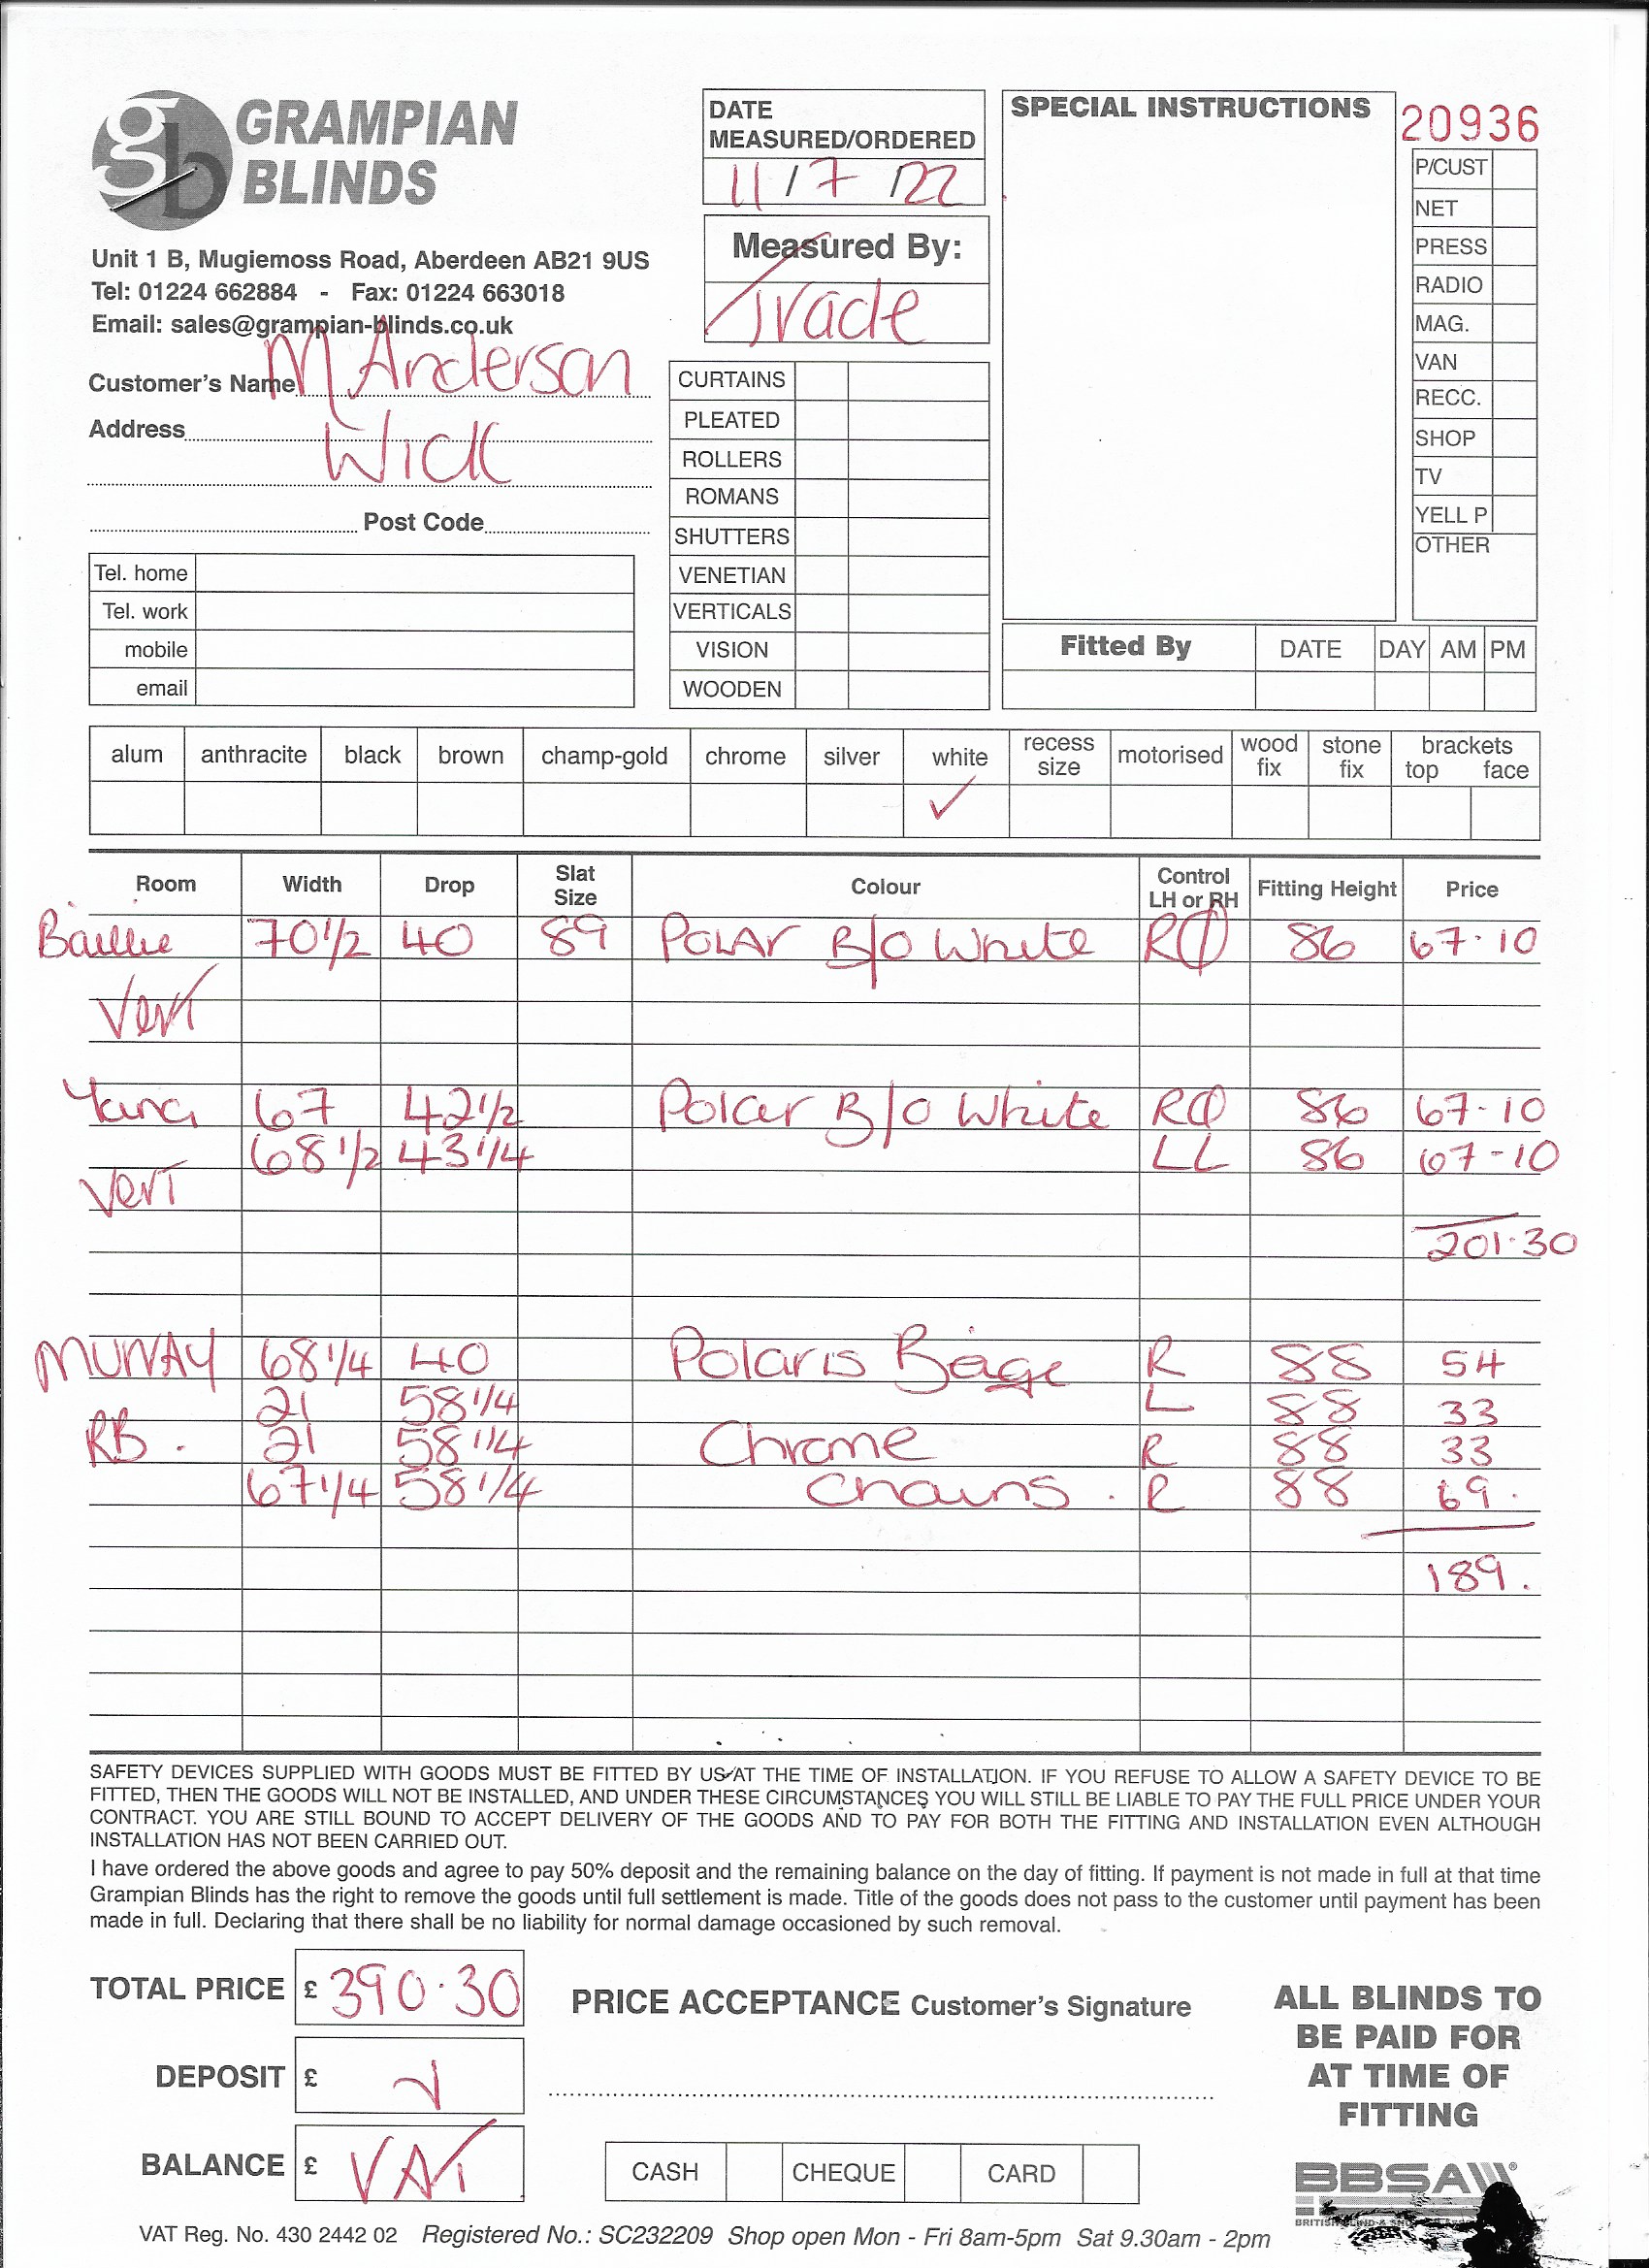 gb GRAMPIAN BLINDS
Unit 1 B, Mugiemoss Road, Aberdeen AB21 9US
Tel: 01224 662884 - Fax: 01224 663018
Email: sales@grampian-blinds.co.uk
Customer's Name M Anderson
Address Wick
Post Code
Tel. home
Tel. work
mobile
email
DATE
MEASURED/ORDERED
11/7/22
Measured By:
Trade
CURTAINS
PLEATED
ROLLERS
ROMANS
SHUTTERS
VENETIAN
VERTICALS
VISION
WOODEN
SPECIAL INSTRUCTIONS
20936
P/CUST
NET
PRESS
RADIO
MAG.
VAN
RECC.
SHOP
TV
YELL P
OTHER
Fitted By DATE DAY AM PM
alum anthracite black brown champ-gold chrome silver white recess size motorised wood fix stone fix brackets top face
✓
Room Width Drop Slat Size Colour Control LH or RH Fitting Height Price
Baillie 70 1/2 40 89 POLAR B/O White 86 67.10
Vert
67 42 1/2 Polar B/O White 86 67-10
68 1/2 43 1/4 LL 86 67-10
Vert
201.30
68 1/4 40 Polaris Beige R 88 54
21 58 1/4 L 88 33
RB. 21 58 1/4 Chrome R 88 33
67 1/4 58 1/4 Chains. R 88 69.
189.
SAFETY DEVICES SUPPLIED WITH GOODS MUST BE FITTED BY US AT THE TIME OF INSTALLATION. IF YOU REFUSE TO ALLOW A SAFETY DEVICE TO BE
FITTED, THEN THE GOODS WILL NOT BE INSTALLED, AND UNDER THESE CIRCUMSTANCES YOU WILL STILL BE LIABLE TO PAY THE FULL PRICE UNDER YOUR
CONTRACT. YOU ARE STILL BOUND TO ACCEPT DELIVERY OF THE GOODS AND TO PAY FOR BOTH THE FITTING AND INSTALLATION EVEN ALTHOUGH
INSTALLATION HAS NOT BEEN CARRIED OUT.
I have ordered the above goods and agree to pay 50% deposit and the remaining balance on the day of fitting. If payment is not made in full at that time
Grampian Blinds has the right to remove the goods until full settlement is made. Title of the goods does not pass to the customer until payment has been
made in full. Declaring that there shall be no liability for normal damage occasioned by such removal.
TOTAL PRICE £ 390.30
DEPOSIT £
BALANCE £ VAT
PRICE ACCEPTANCE Customer's Signature
CASH CHEQUE CARD
ALL BLINDS TO
BE PAID FOR
AT TIME OF
FITTING
BBSA®
VAT Reg. No. 430 2442 02 Registered No.: SC232209 Shop open Mon - Fri 8am-5pm Sat 9.30am - 2pm